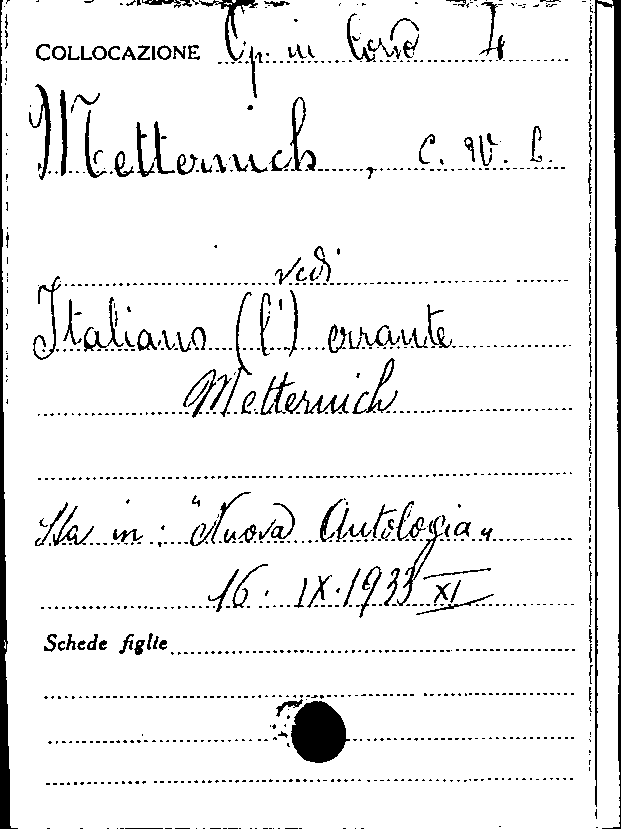 COLLOCAZIONE Op. in Corso 4
Metternich, C. W. L.
vedi
Italiano (l') errante
Metternich
Sta in: "Nuova Antologia"
16. IX. 1933 XI
Schede figlie